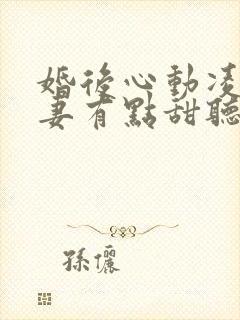 婚後心動凌
妻有點甜聽
孫儷